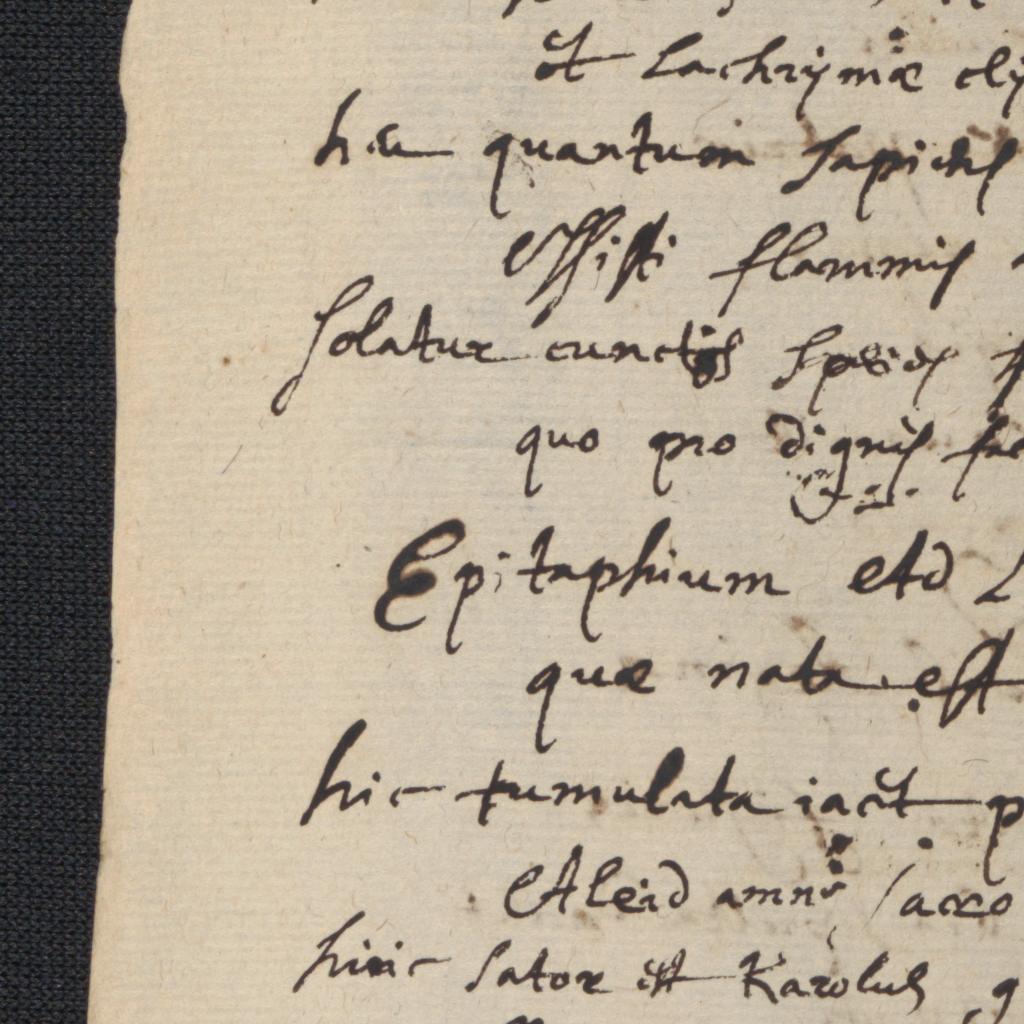 et Lachrymæ
heu quantum sapiens
Essisti flammis
Solatur cunctos spesq
quo pro dignis
Epitaphium Ad
quæ nata est
hic tumulata iacet
Aleid amnis sacro
huic sator est Karolus